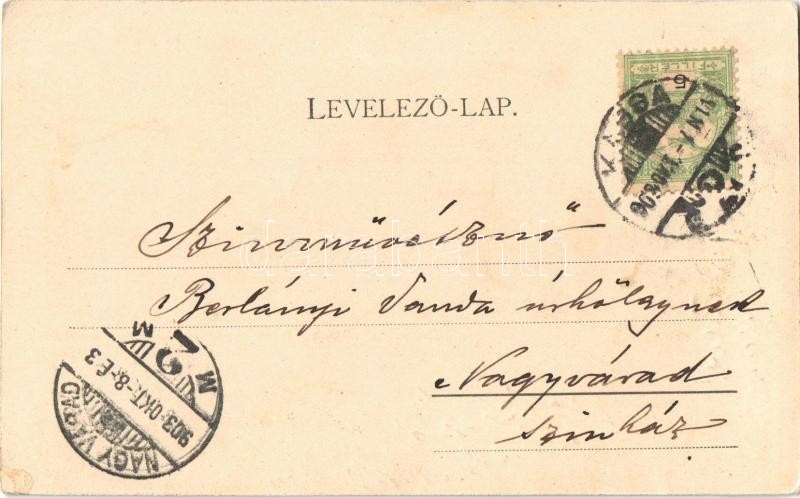 LEVELEZŐ-LAP.
FILLER
5
KASSA
903 OKT.
Szinművésznő
Berlányi Vanda úrhölgynek
Nagyvárad
szinház
NAGYVÁRAD
903 OKT.-8.-E3
M
M
darabanth